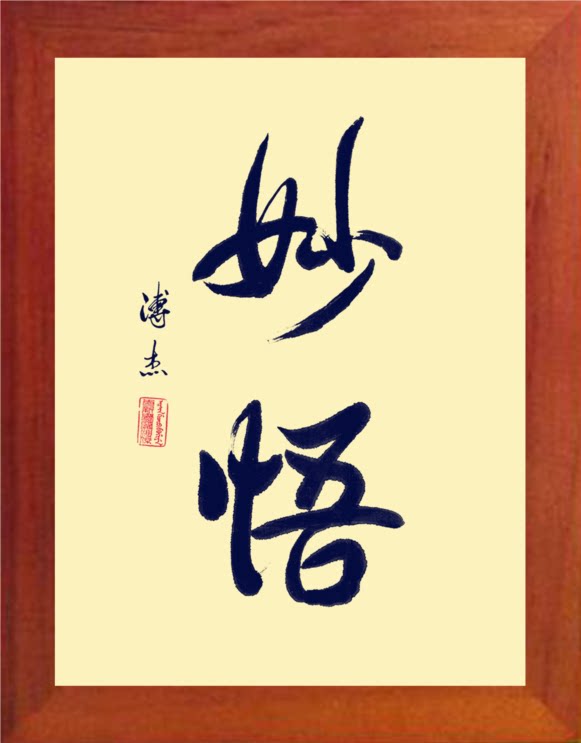 妙悟
溥杰